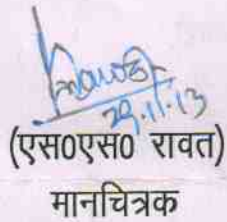 29.11.13
(एस0एस0 रावत)
मानचित्रक